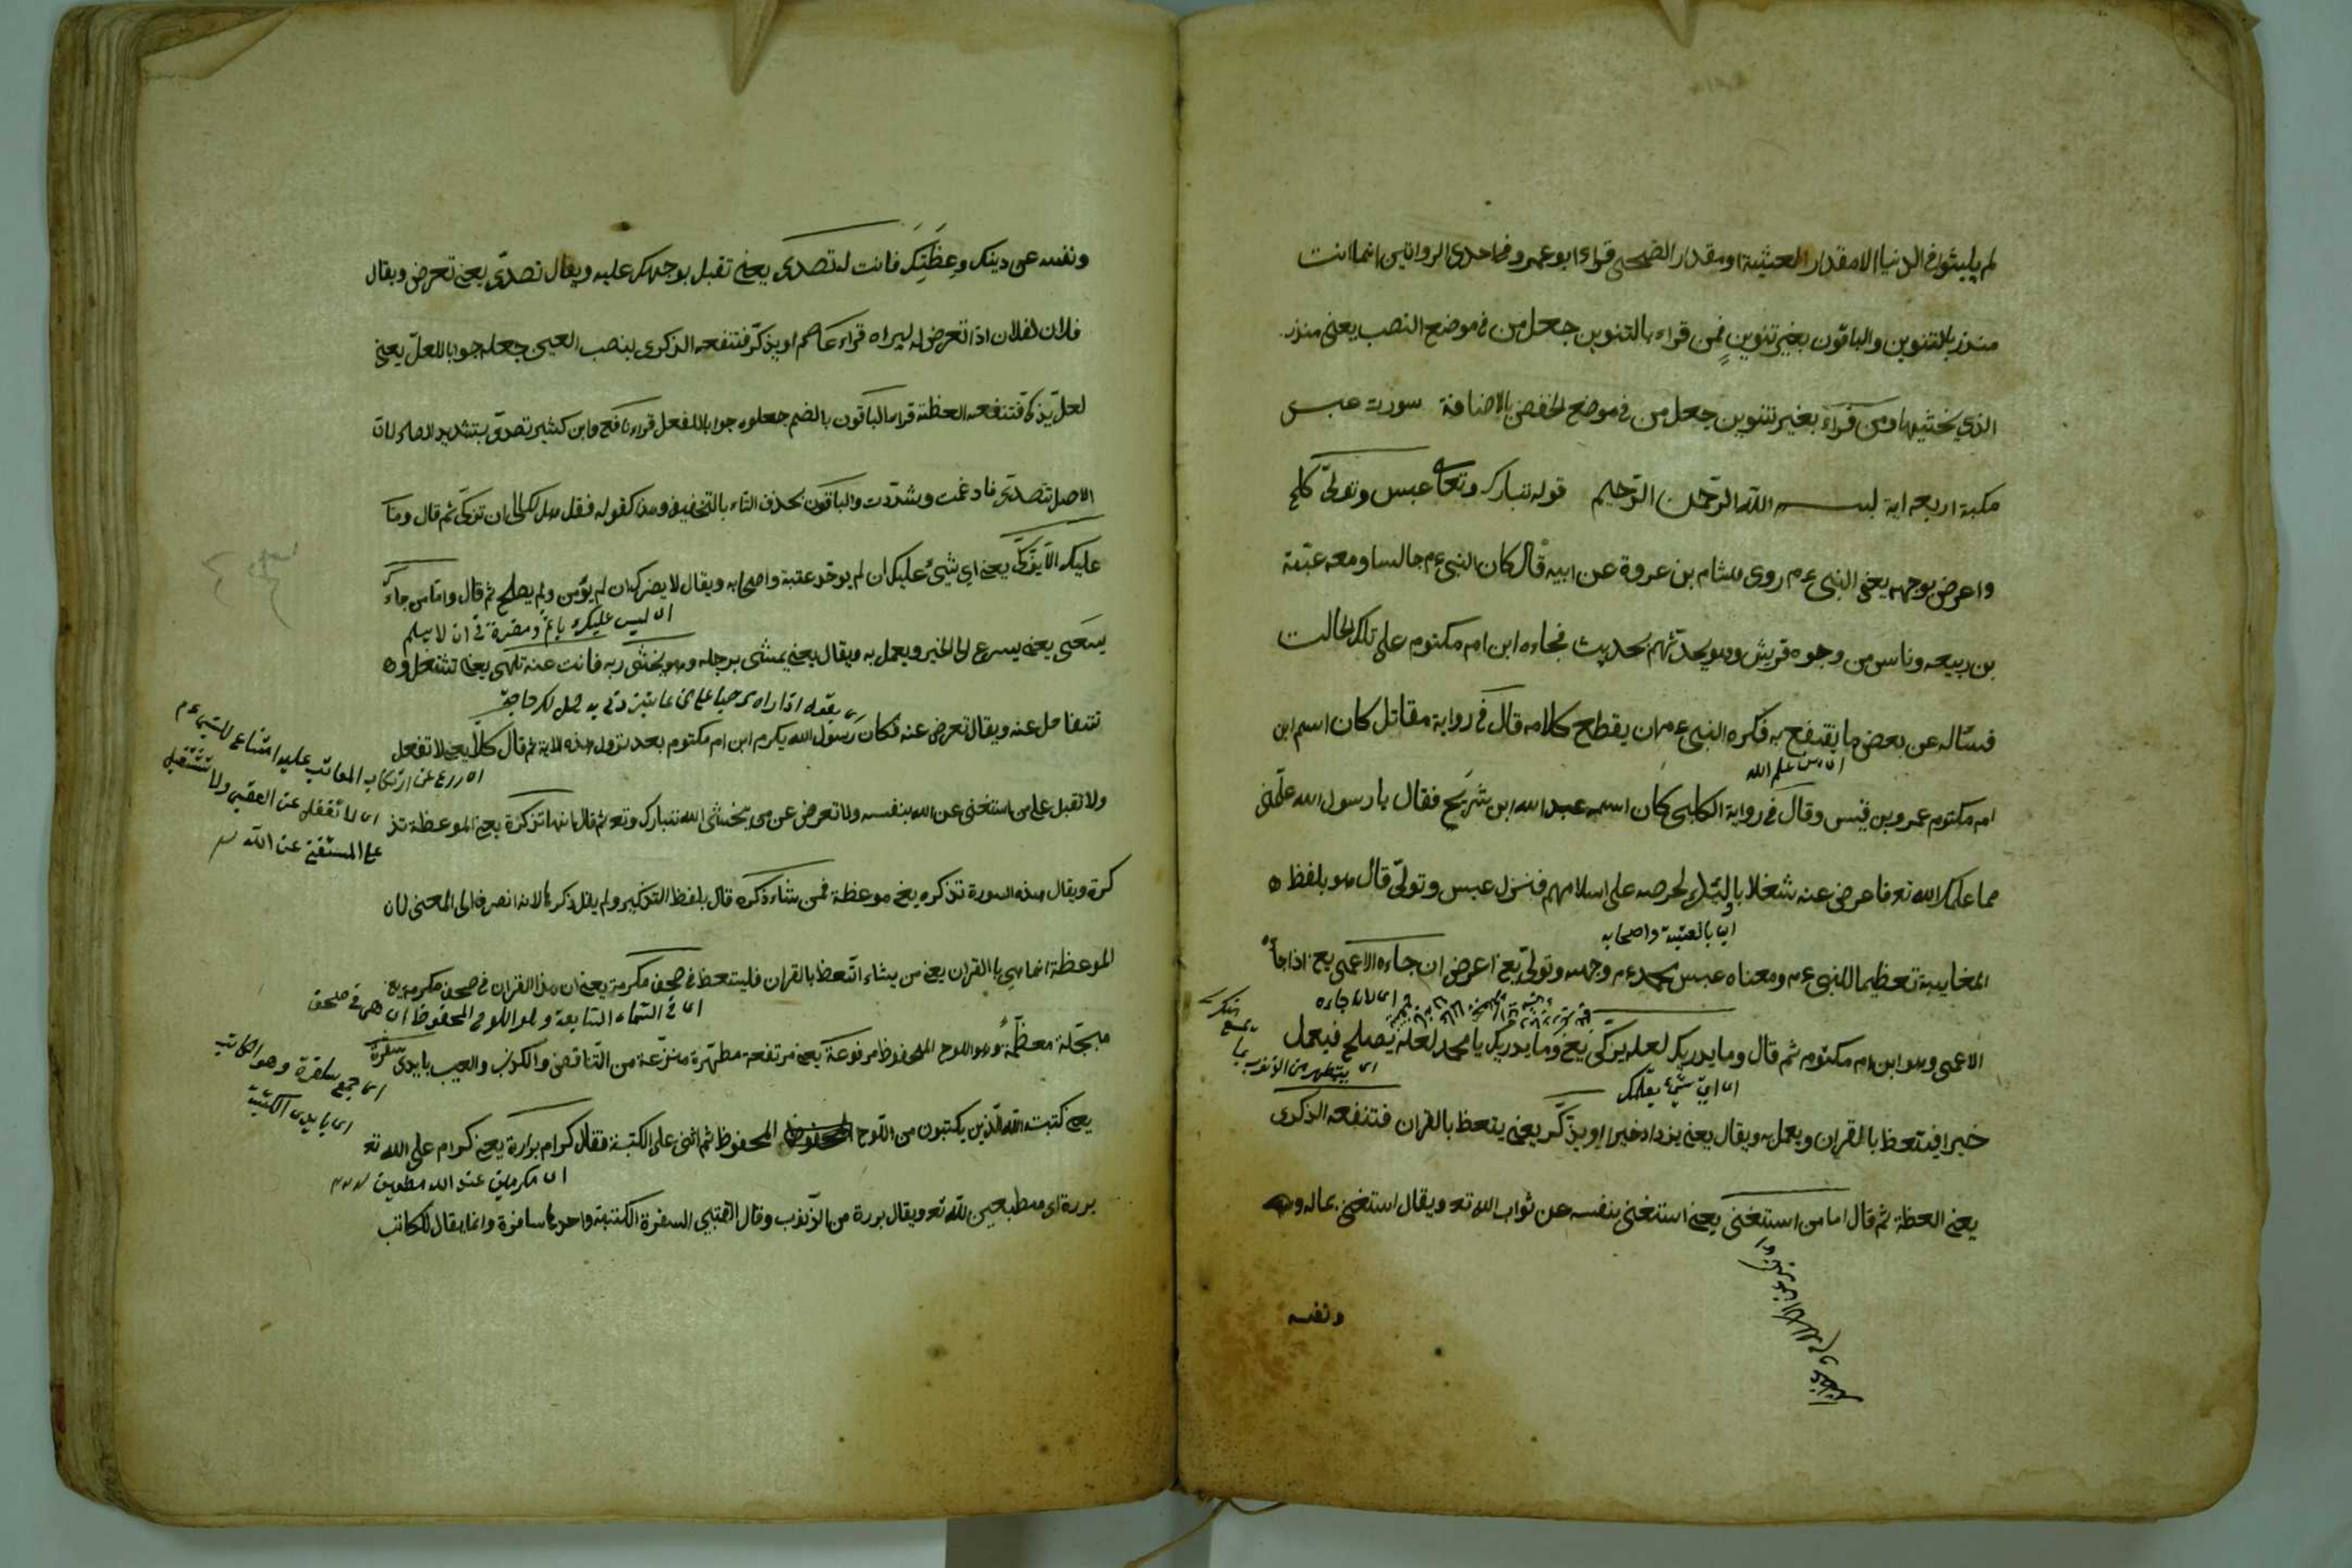 لم يلبثوا في الدنيا الا مقدار العشية او مقدار الضحى قراء ابو عمرو في احدى الروايتين انما انت
منذر بالتنوين والباقون بغير تنوين فمن قراء بالتنوين جعل من في موضع النصب يعني منذر
الذي يخشيها ومن قراء بغير تنوين جعل من في موضع الخفض بالاضافة سورت عبس
مكية اربعه اية بسم الله الرحمن الرحيم قوله تبارك وتعالى عبس وتولى كلح
واعرض بوجهه يعني النبي عم روى هشام بن عروة عن ابيه قال كان النبي عم جالسا ومعه عتبة
بن ربيعه وناس من وجوه قريش وهو يحدثهم بحديث فجاءه ابن ام مكتوم على تلك الحالت
فسئاله عن بعض ما ينتفع به فكره النبي عم ان يقطع كلامه قال في رواية مقاتل كان اسم ابن
ام مكتوم عمرو بن قيس وقال في رواية الكلبي كان اسمه عبد الله ابن شريح فقال يا رسول الله علمني
مما علمك الله تع فاعرض عنه شغلا باولئك لحرصه على اسلامهم فنزل عبس وتولى قال هو بلفظ
اى بالعتبة واصحابه
المغايبة تعظيما للنبي عم ومعناه عبس محمد عم وجهه وتولى يع اعرض ان جاءه الاعمى يع اذا جاء
اى لان جاءه
الاعمى وهو ابن ام مكتوم ثم قال وما يدريك لعله يزكى يع وما يدريك يا محمد لعله يصلح فيعمل
اى اى شئ يعلمك
اى يتطهر من الذنوب
خيرا فيتعظ بالقران ويعمل به ويقال يعني يزداد خيرا او يذكر يعني يتعظ بالقران فتنفعه الذكرى
يعني العظة ثم قال اما من استغنى يعني استغنى بنفسه عن ثواب الله تع ويقال استغنى بماله
ونفسه
ونفسه عن دينك وعظتك فانت له تصدى يعني تقبل بوجهك عليه ويقال تصدى يعني تعرض ويقال
فلان لفلان اذا تعرض له ليراه قراء عاصم او يذكر فتنفعه الذكرى بنصب العين جعله جوابا للعل يعني
لعل يذكر فتنفعه العظة قراء الباقون بالضم جعلوه جوابا للفعل قراء نافع وابن كثير تصدى بتشديد الصاد لان
الاصل تتصدى فادغمت وشددت والباقون بحذف التاء بالتخفيف وهذا كقوله فقل هل لك الى ان تزكى ثم قال وما
عليك الا يزكى يعني اي شئ عليك ان لم يوحد عتبة واصحابه ويقال لا يضرك ان لم يؤمن ولم يصلح ثم قال واما من جاءك
اى ليس عليك باس ومضرة في ان لا يسلم
يسعى يعني يسرع الى الخير ويعمل به ويقال يعني يمشى برجله وهو يخشى ربه فانت عنه تلهى يعني تشتغل
يقول اذا راه مرحبا على من عاتبني ربي به هل لك حاجة
تتغافل عنه ويقال تعرض عنه فكان رسول الله يكرم ابن ام مكتوم بعد نزول هذه الاية ثم قال كلا يعني لا تفعل
ولا تقبل على من استغنى عن الله بنفسه ولا تعرض عن من يخشى الله تبارك وتع ثم قال انها تذكرة يعني الموعظة تذ
اى لا تغفل عن الفقير ولا تشتغل
على المستغنى عن الله
كرة ويقال هذه السورة تذكره يعني موعظة فمن شاء ذكره قال بلفظ التذكير ولم يقل ذكرها لانه انصرف الى المعنى لان
الموعظة انما هي بالقران يعني من يشاء اتعظ بالقران فليتعظ في صحف مكرمة يعني ان هذا القران في صحف مكرمة يع
اى في السماء السابعة وهو اللوح المحفوظ اى هي في صحف
مبجلة معظمة وهو اللوح المحفوظ مرفوعة يعني مرتفعة مطهرة منزعة من التناقض والكذب والعيب بايدى سفرة
اى جمع سافرة وهو الكاتب
اى بايدى الكتبة
يعني كتبت الله الذين يكتبون من اللوح المحفوظ ثم اثنى على الكتبة فقال كرام بررة يعني كرام على الله تع
اى مكرمين عند الله مطيعين
بررة اى مطيعين لله تع ويقال بررة من الذنوب وقال القتبي السفرة الكتبة واحدها سافرة وانما يقال للكاتب